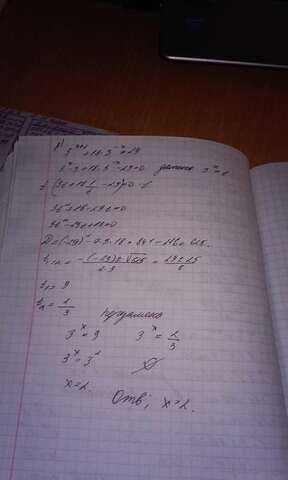 1) 3^(x+1) + 18·3^(-x) = 29
3^x·3 + 18·3^(-x) - 29 = 0 замена 3^x = t
3t + 18 1/t - 29 = 0 · t
3t² + 18 - 29t = 0
3t² - 29t + 18 = 0
D = (-29)² - 4·3·18 = 841 - 216 = 625
t₁,₂ = (-(-29) ± √625)/(2·3) = (29 ± 25)/6
t₁ = 9
t₂ = 2/3
3^x = 9 3^x = 2/3
3^x = 3² ∅
x = 2.
Отв; x = 2.